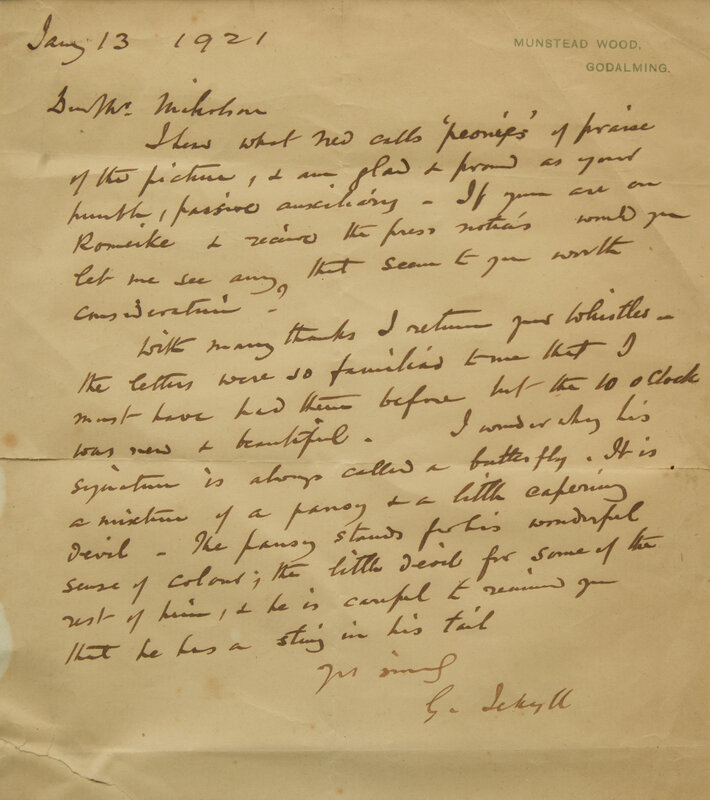 Jany 13 1921
MUNSTEAD WOOD,
GODALMING.
Dear Mr. Nicholson
I hear what Ned calls 'peonies' of praise
of the picture, & am glad & proud as your
humble, passive auxiliary – If you are on
Romeike & receive the press notices would you
let me see any, that seem to you worth
consideration?
With many thanks I return your Whistler –
the letters were so familiar to me that I
must have had them before but the 10 o'Clock
was new & beautiful. I wonder why his
signature is always called a butterfly. It is
a mixture of a pansy & a little capering
devil – The pansy stands for his wonderful
sense of colour; the little devil for some of the
rest of him, & he is careful to remind you
that he has a sting in his tail
Yrs sincerely
G. Jekyll